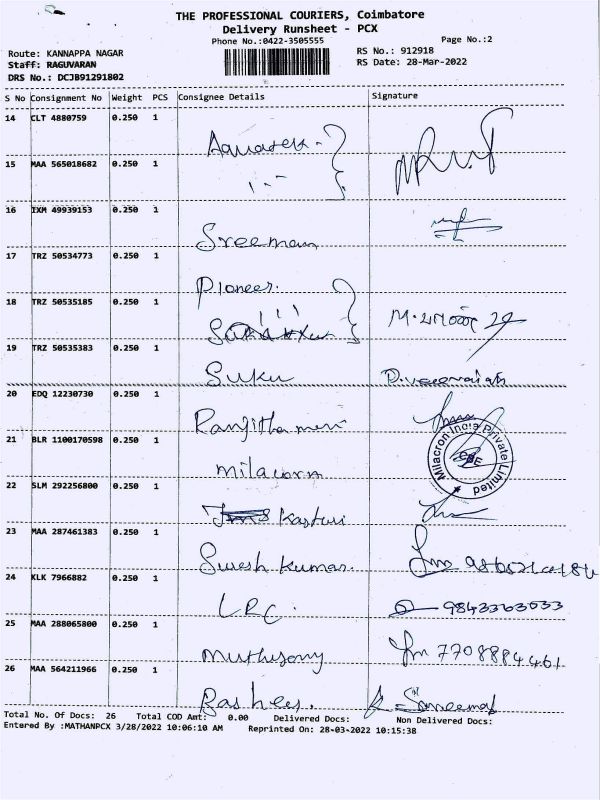 THE PROFESSIONAL COURIERS, Coimbatore
Delivery Runsheet - PCX
Phone No.:0422-3505555
Page No.:2
Route: KANNAPPA NAGAR
RS No.: 912918
Staff: RAGUVARAN
RS Date: 28-Mar-2022
DRS No.: DCJB91291802
S No Consignment No Weight PCS Consignee Details Signature
14 CLT 4880759 0.250 1
15 MAA 565018682 0.250 1
16 IXM 49939153 0.250 1
Sreeman
17 TRZ 50534773 0.250 1
Pioneer
18 TRZ 50535185 0.250 1
19 TRZ 50535383 0.250 1
Suku
20 EDQ 12230730 0.250 1
Ranjitha
Milacron India Private Limited
21 BLR 1100170598 0.250 1
milacorn
22 SLM 292256800 0.250 1
Kasturi
23 MAA 287461383 0.250 1
Suresh Kumar.
24 KLK 7966882 0.250 1
LRC. 9843363033
25 MAA 288065800 0.250 1
muthusamy 7708884461
26 MAA 564211966 0.250 1
Total No. Of Docs: 26 Total COD Amt: 0.00 Delivered Docs: Non Delivered Docs:
Entered By :MATHANPCX 3/28/2022 10:06:10 AM Reprinted On: 28-03-2022 10:15:38